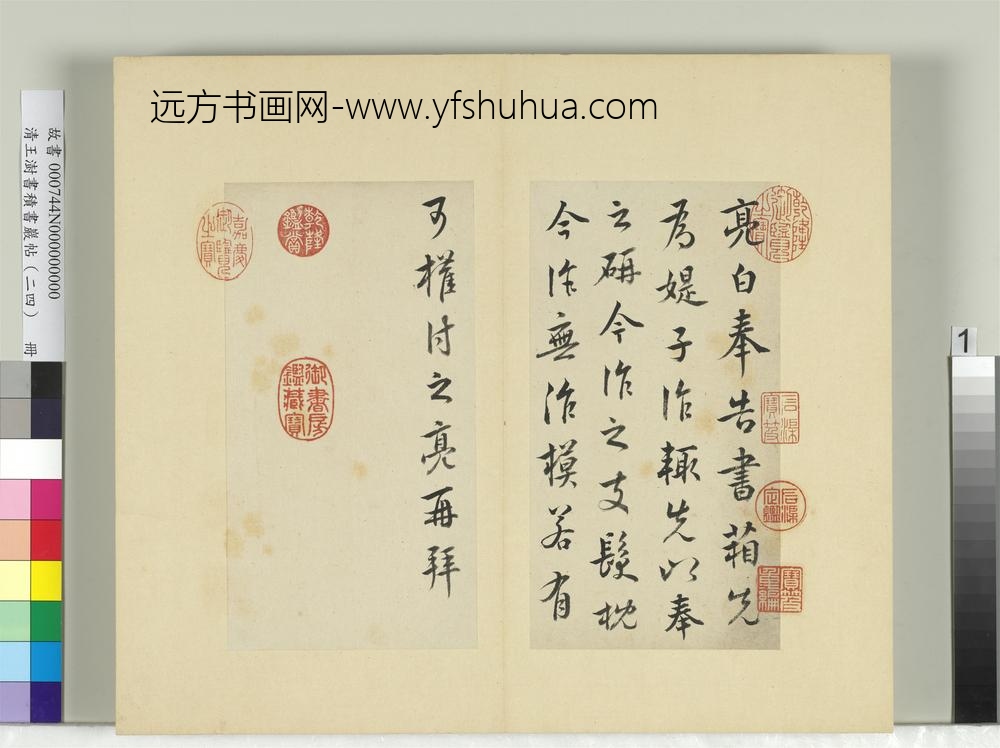 远方书画网-www.yfshuhua.com
故書 000744N000000000
清王澍書積書巖帖（二四） 冊
1
亮白奉告書葙先
為媞子作輙先以奉
之研今作之支髮枕
今作無治模若有
可權付之亮再拜
乾隆御覽之寶
石渠寶笈
石渠定鑑
寶笈重編
乾隆鑑賞
嘉慶御覽之寶
御書房鑑藏寶